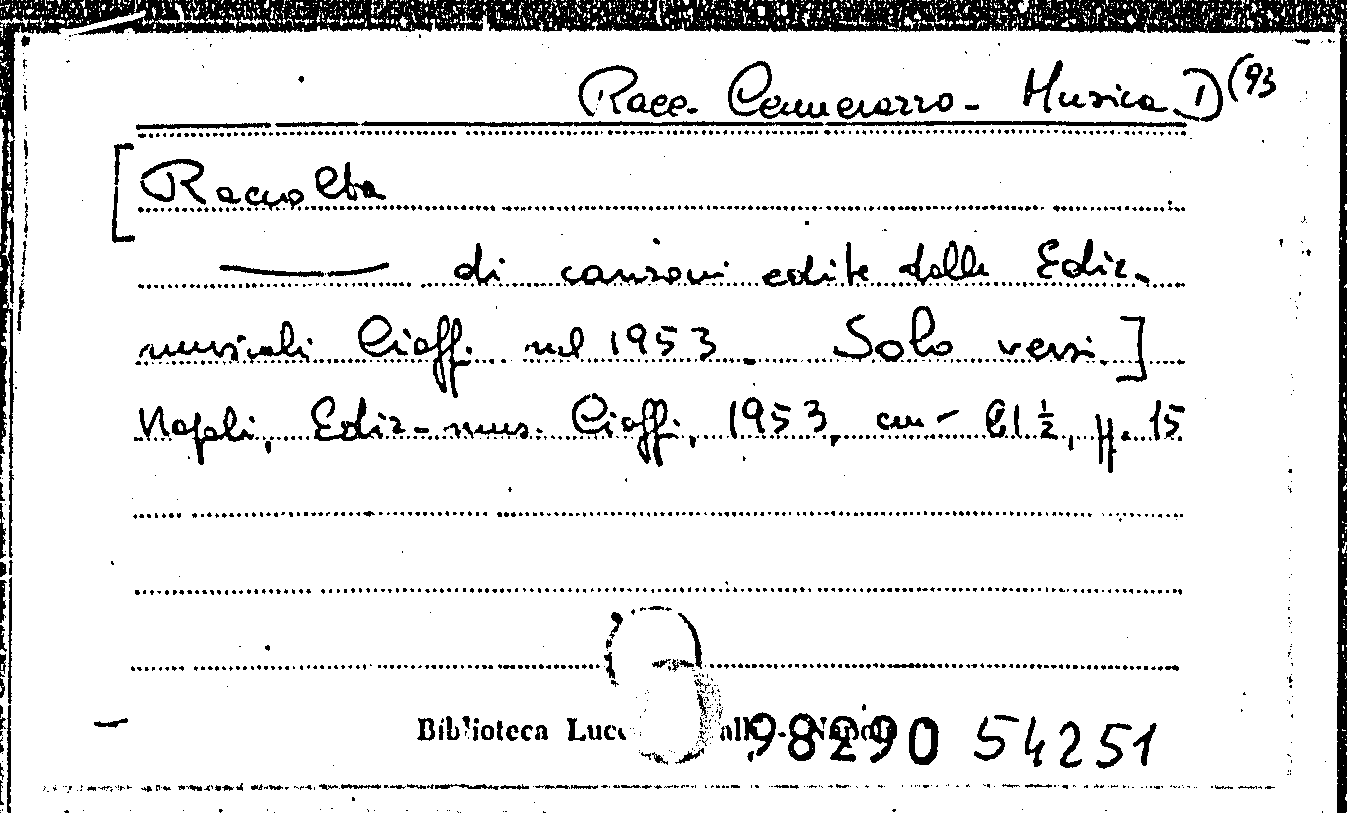 Racc. Cammarazzo - Musica D (93
[Raccolta
—— di canzoni edite dalle Ediz.
musicali Cioffi nel 1953. Solo versi.]
Napoli, Ediz. mus. Cioffi, 1953, cm. 21 ½, pp. 15
Biblioteca Lucc alli - Napoli 98290 54251